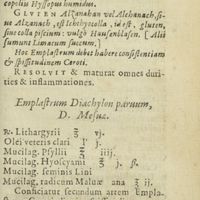 copulis Hyssopus humidus.
GLUTEN Alzanahan vel Alchanach, si-
ue Alzanach, est Ichthyocolla, id est, gluten,
siue colla piscium: vulgò Hausenblasen. [Alij
sumunt Limacum succum.]
Hoc Emplastrum debet habere consistentiam
& spissitudinem Ceroti.
RESOLVIT & maturat omnes duri-
ties & inflammationes.
Emplastrum Diachylon paruum,
D. Mesuæ.
℞. Lithargyrii ℥ vj.
Olei veteris clari ℔ j.
Mucilag. Psyllii ℥ iiij.
Mucilag. Hyoscyami ℥ j. ß.
Mucilag. seminis Lini
Mucilag. radicum Maluæ ana ℥ ij.
Conficiatur secundum artem Empla-